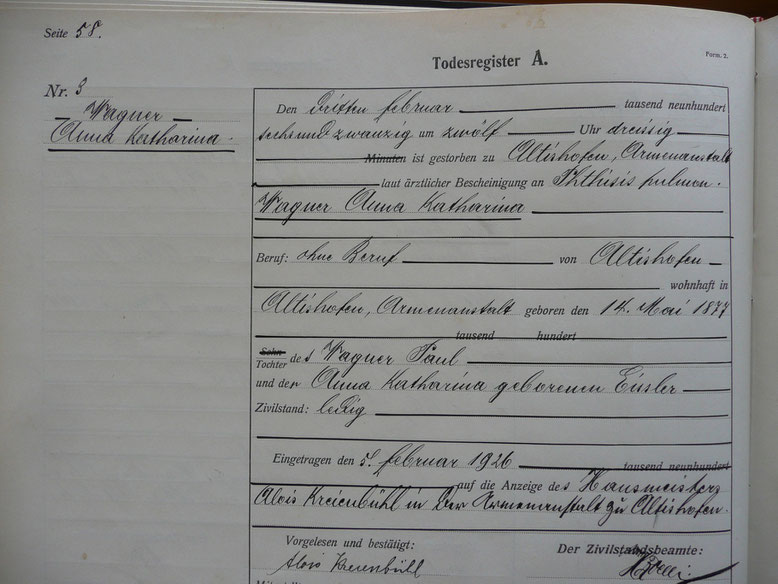 Seite 58.
Todesregister A.
Form. 2.
Nr. 3
Wagner
Anna Katharina.
Den dritten februar tausend neunhundert
sechsundzwanzig um zwölf Uhr dreissig
Minuten ist gestorben zu Altishofen, Armenanstalt
laut ärztlicher Bescheinigung an Phthisis pulmon.
Wagner Anna Katharina
Beruf: ohne Beruf von Altishofen
wohnhaft in
Altishofen, Armenanstalt geboren den 14. Mai 1877
tausend hundert
Sohn
Tochter des Wagner Paul
und der Anna Katharina geborenen Eissler
Zivilstand: ledig
Eingetragen den 5. februar 1926 tausend neunhundert
auf die Anzeige des Hausmeisters
Alois Kreienbühl in der Armenanstalt zu Altishofen.
Vorgelesen und bestätigt: Der Zivilstandsbeamte:
Alois Kreienbühl